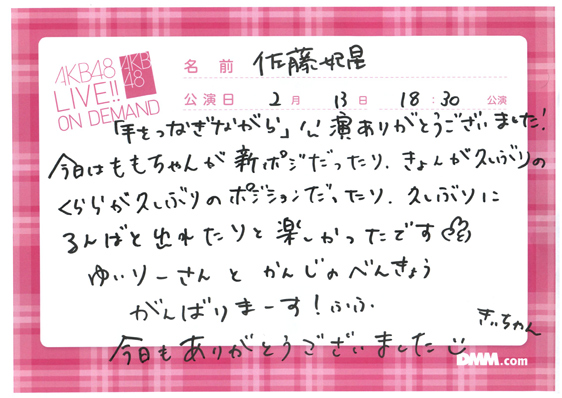 AKB48
LIVE!!
ON DEMAND
AKB
48
名前 佐藤妃星
公演日 2月 13日 18:30 公演
「手をつなぎながら」公演ありがとうございました!
今日はももちゃんが新ポジだったり、きょんが久しぶりの
くららが久しぶりのポジションだったり、久しぶりに
るんばと出れたりと楽しかったです
ゆいりーさんと かんじのべんきょう
がんばりまーす!ふふ
きぃちゃん
今日もありがとうございました
DMM.com